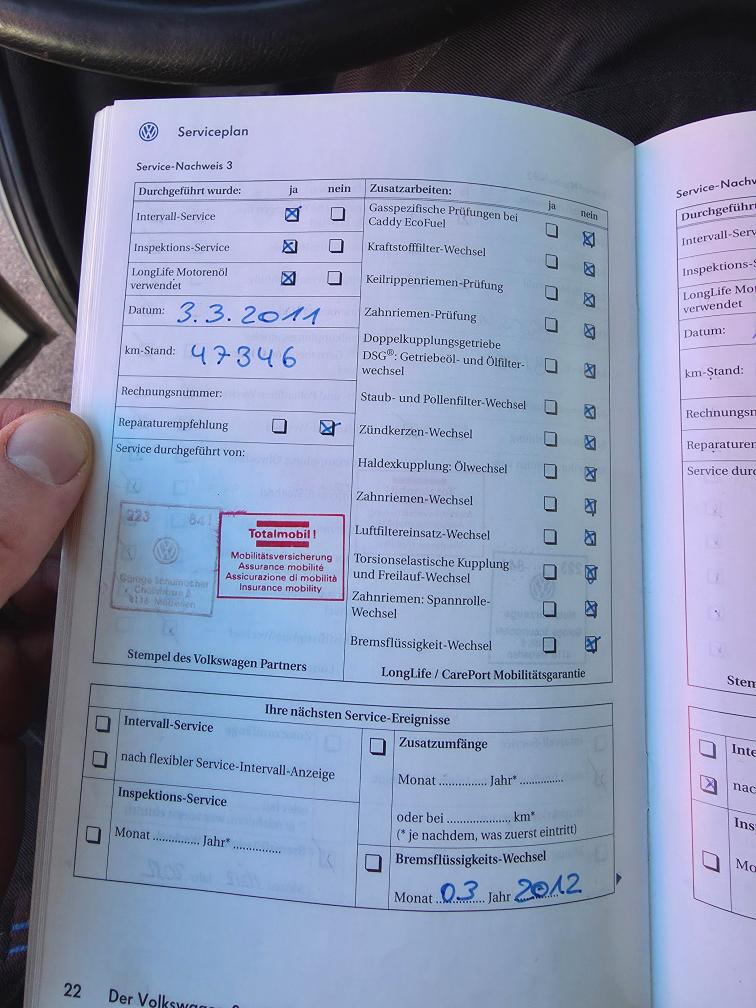 Serviceplan
Service-Nachweis 3
Durchgeführt wurde: ja nein
Intervall-Service
Inspektions-Service
LongLife Motorenöl
verwendet
Datum: 3.3.2011
km-Stand: 47346
Rechnungsnummer:
Reparaturempfehlung
Service durchgeführt von:
223 841
Garage Schumacher
Totalmobil!
Mobilitätsversicherung
Assurance mobilité
Assicurazione di mobilità
Insurance mobility
Stempel des Volkswagen Partners
Zusatzarbeiten: ja nein
Gasspezifische Prüfungen bei
Caddy EcoFuel
Kraftstofffilter-Wechsel
Keilrippenriemen-Prüfung
Zahnriemen-Prüfung
Doppelkupplungsgetriebe
DSG®: Getriebeöl- und Ölfilter-
wechsel
Staub- und Pollenfilter-Wechsel
Zündkerzen-Wechsel
Haldexkupplung: Ölwechsel
Zahnriemen-Wechsel
Luftfiltereinsatz-Wechsel
Torsionselastische Kupplung
und Freilauf-Wechsel
Zahnriemen: Spannrolle-
Wechsel
Bremsflüssigkeit-Wechsel
LongLife / CarePort Mobilitätsgarantie
Ihre nächsten Service-Ereignisse
Intervall-Service
nach flexibler Service-Intervall-Anzeige
Inspektions-Service
Monat ............... Jahr* ...............
Zusatzumfänge
Monat ............... Jahr* ...............
oder bei ....................., km*
(* je nachdem, was zuerst eintritt)
Bremsflüssigkeits-Wechsel
Monat 03 Jahr 2012
22 Der Volkswagen
Service-Nachw
Durchgeführ
Intervall-Serv
Inspektions-S
LongLife Mot
verwendet
Datum:
km-Stand:
Rechnungsn
Reparaturem
Service durc
Stem
Inte
nac
Ins
Mo